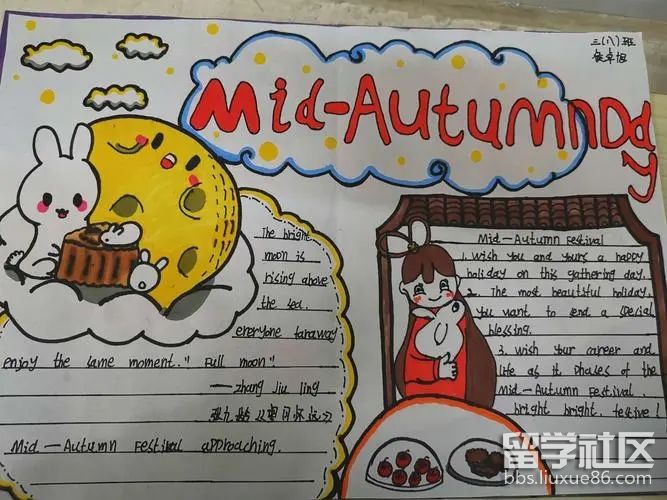 三(八)班
Mid-Autumn Day
The bright
moon is
rising above
the sea.
everyone faraway
enjoy the same moment." Full moon"!
—zhang Jiu ling
Mid—Autumn Festival approaching.
Mid—Autumn Festival
1. wish you and yours a happy
holiday on this gathering day.
2. The most beautiful holiday.
You want to send a special
blessing.
3. wish your career and
life as it phases of the
Mid-Autumn Festival,
bright bright, festive!
留学社区
bbs.liuxue86.com